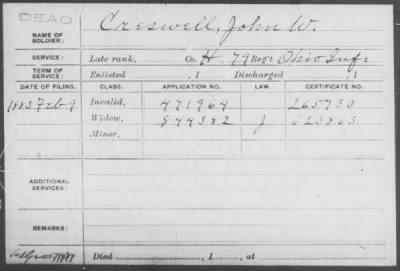 DEAD
Creswell, John W.
NAME OF SOLDIER:
SERVICE: Late rank, Co. H. 79 Reg't Ohio Inf.
TERM OF SERVICE: Enlisted , 1 Discharged , 1
DATE OF FILING. CLASS. APPLICATION NO. LAW. CERTIFICATE NO.
1883 Feb 9 Invalid, 471964 265730
Widow, 844382 J 623863
Minor,
ADDITIONAL SERVICES:
REMARKS:
Died , 1 , at